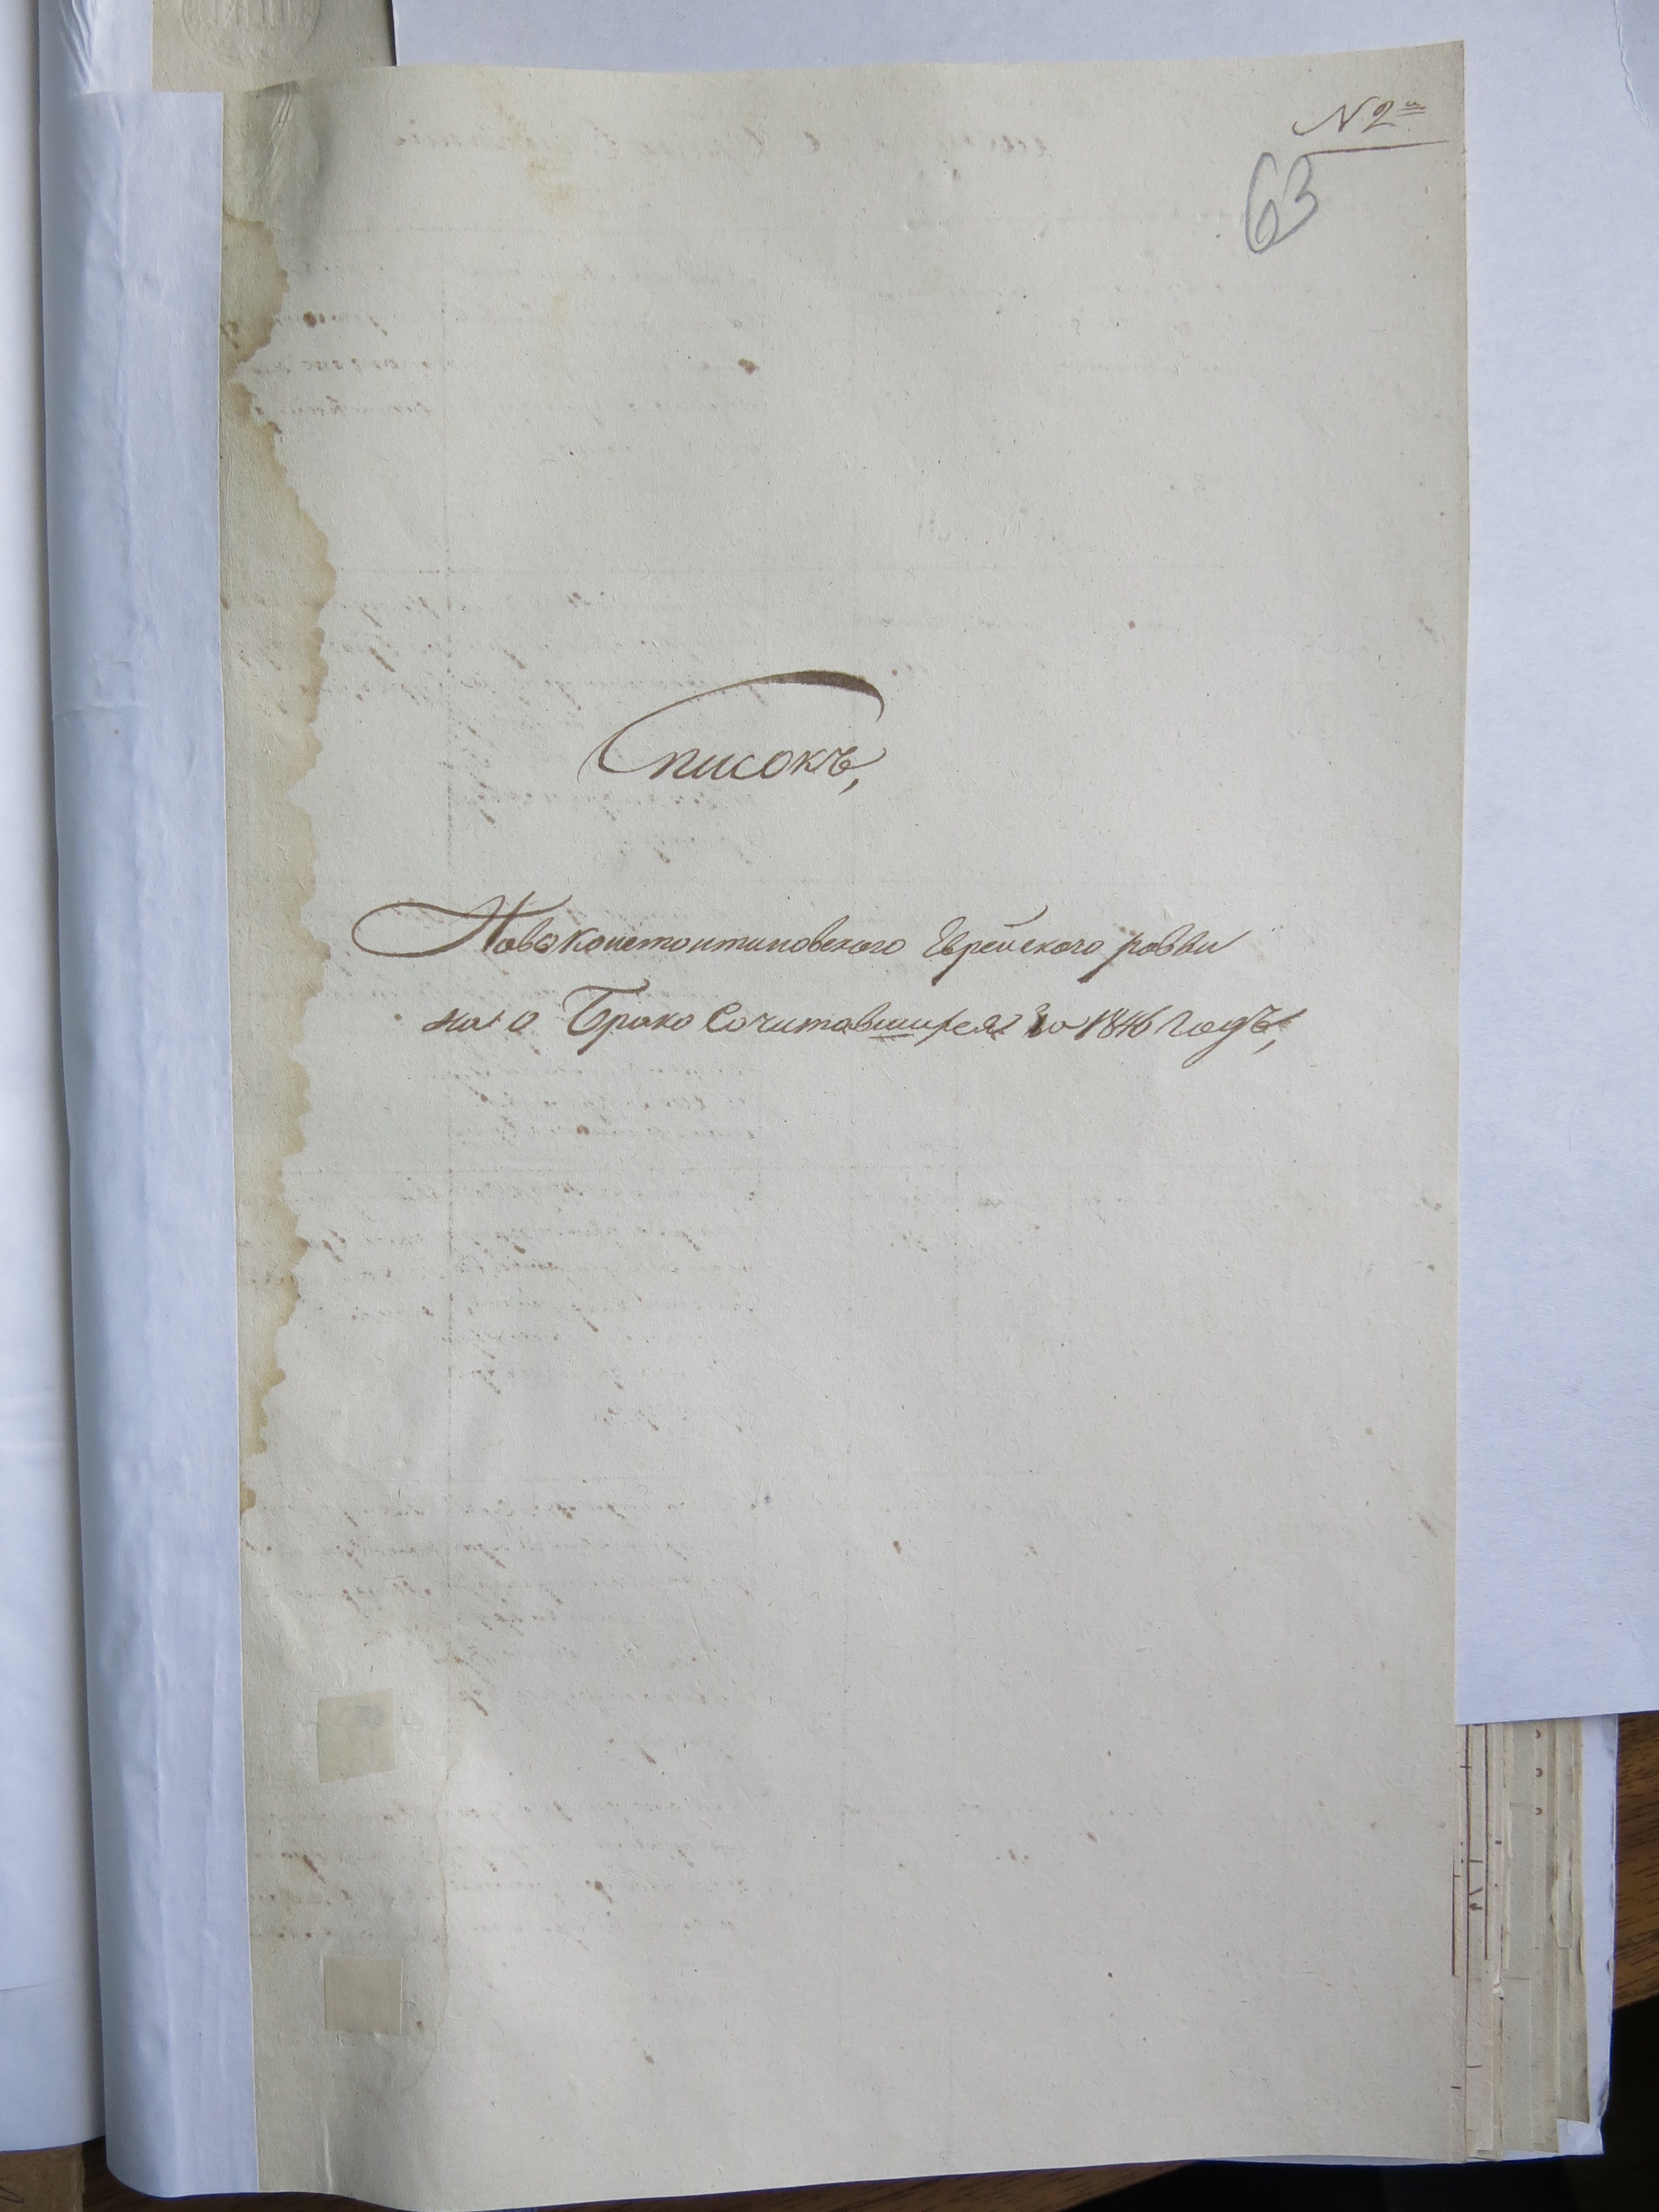 N 2й
63
Списокъ,
Новоконстантиновского Еврейского равви
на о Брако Сочитавшихся за 1846 Годъ,